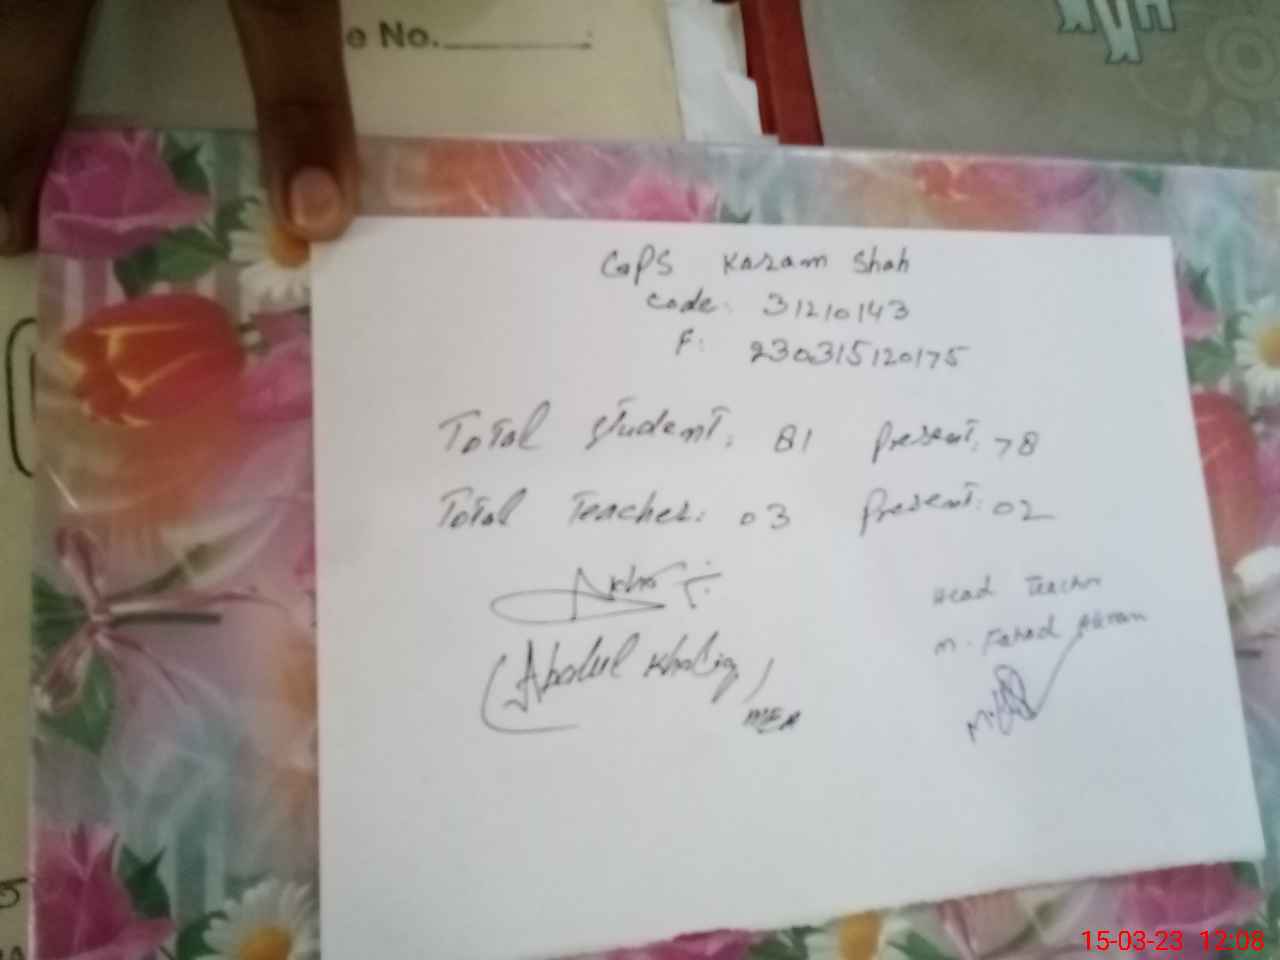 e No.
GPS Karam Shah
Code: 31210143
F: 230315120175
Total student: 81 Present: 78
Total Teacher: 03 Present: 02
Head Teacher
(Abdul Khaliq)
M. Fahad Akram
MEA
15-03-23 12:08